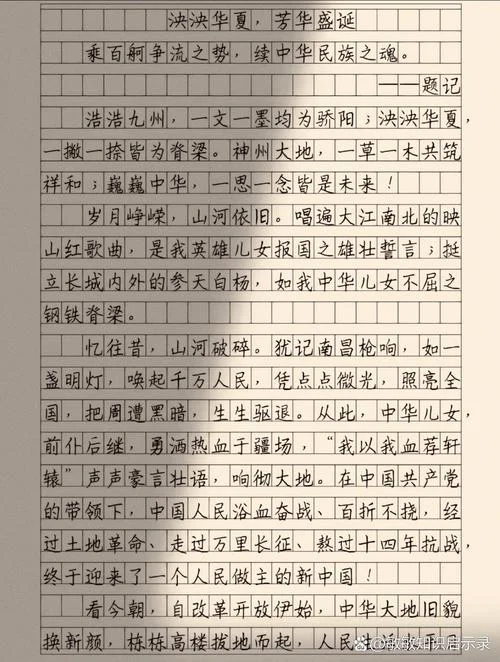 泱泱华夏，芳华盛诞
乘百舸争流之势，续中华民族之魂。
——题记
浩浩九州，一文一墨均为骄阳；泱泱华夏，
一撇一捺皆为脊梁。神州大地，一草一木共筑
祥和；巍巍中华，一思一念皆是未来！
岁月峥嵘，山河依旧。唱遍大江南北的映
山红歌曲，是我英雄儿女报国之雄壮誓言；挺
立长城内外的参天白杨，如我中华儿女不屈之
钢铁脊梁。
忆往昔，山河破碎。犹记南昌枪响，如一
盏明灯，唤起千万人民，凭点点微光，照亮全
国，把周遭黑暗，生生驱退。从此，中华儿女，
前仆后继，勇洒热血于疆场，“我以我血荐轩
辕”声声豪言壮语，响彻大地。在中国共产党
的带领下，中国人民浴血奋战、百折不挠，经
过土地革命、走过万里长征、熬过十四年抗战，
终于迎来了一个人民做主的新中国！
看今朝，自改革开放伊始，中华大地旧貌
换新颜，栋栋高楼拔地而起，人民生活
敏敏知识启示录